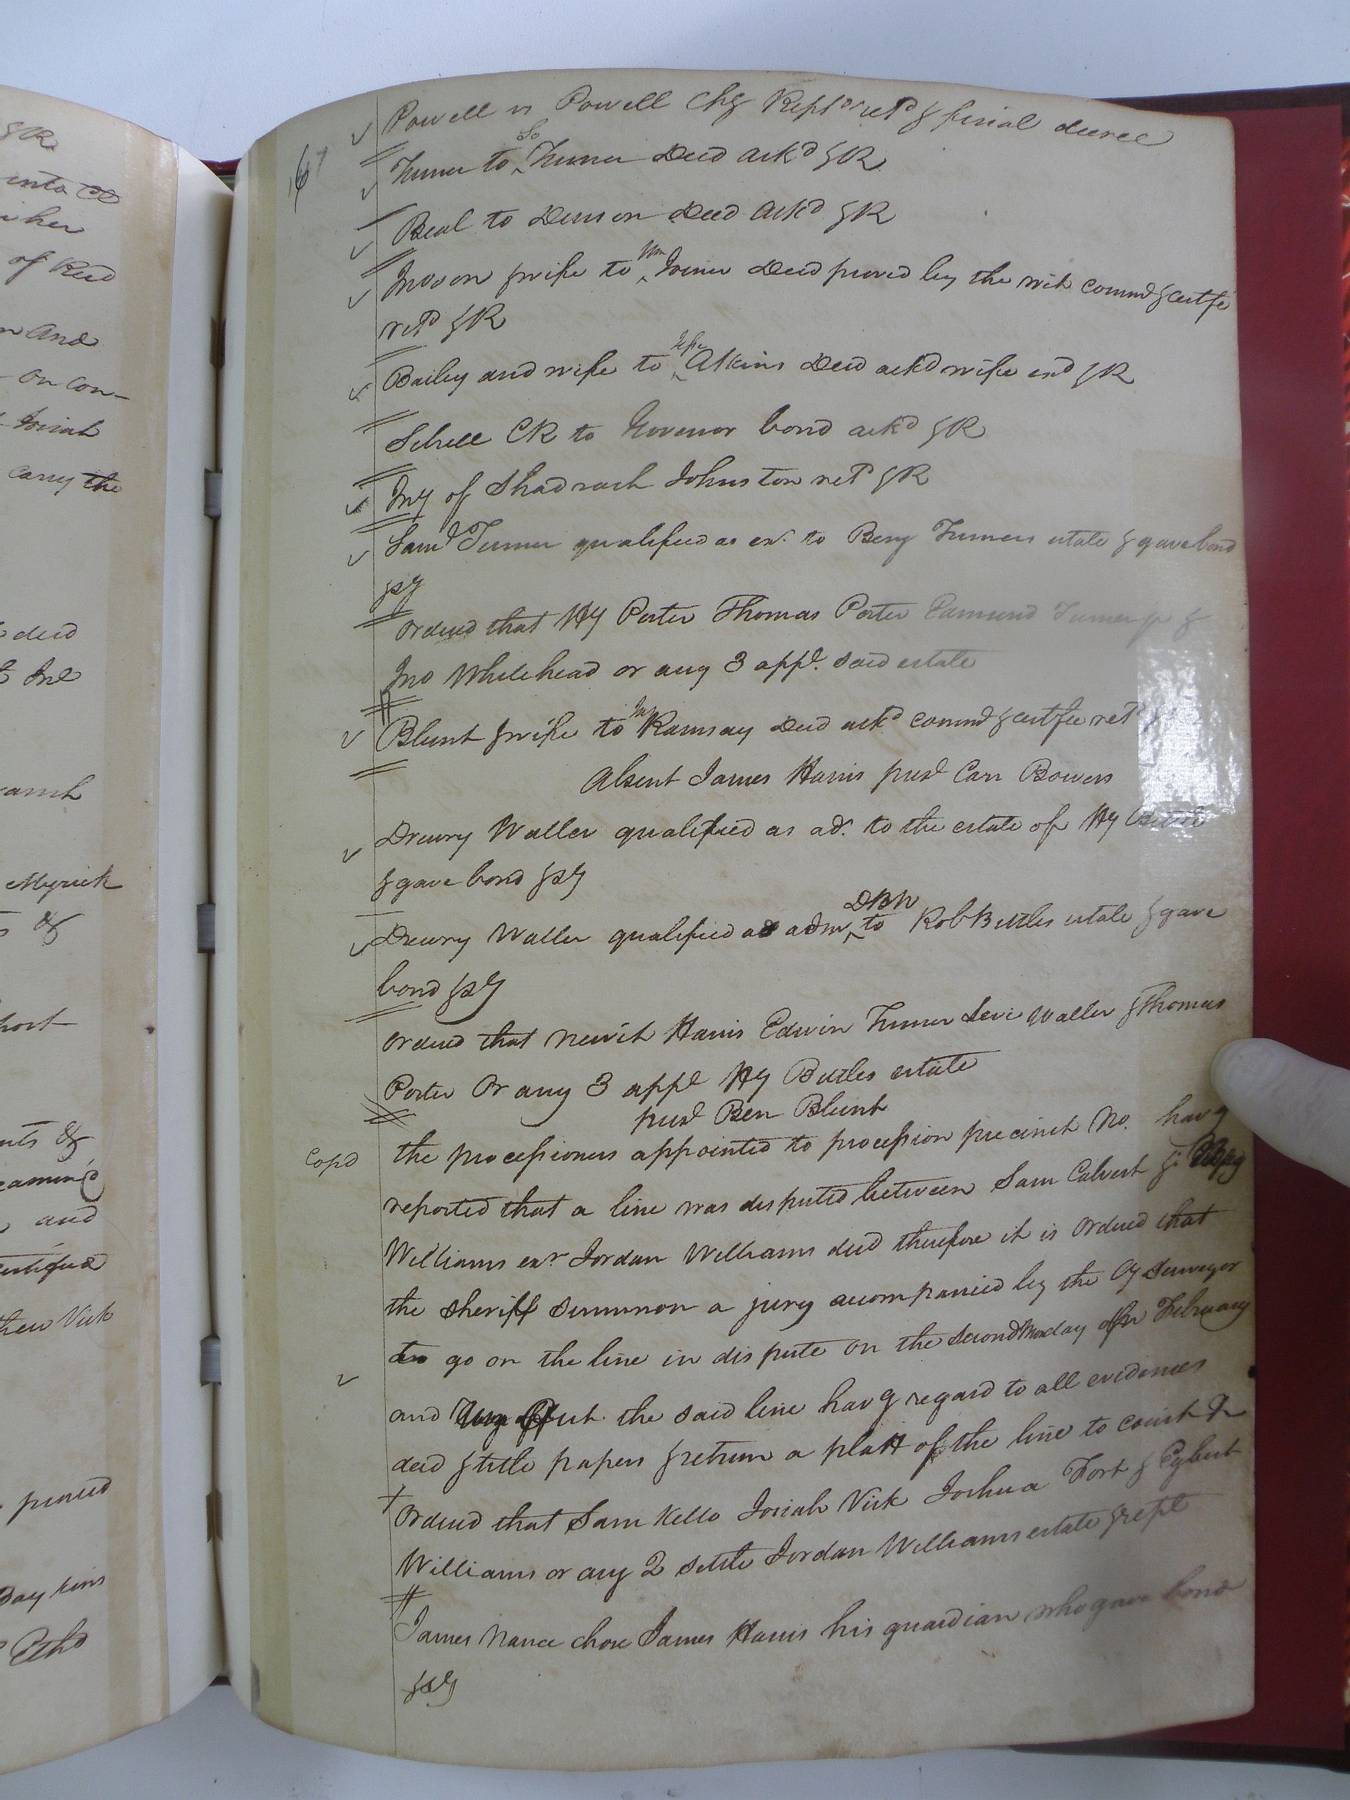 Powell vs Powell Chy Repts retd & final decree
167
Turner to So Turner Deed ackd & R
Beal to Denson Deed ackd & R
wife to Wm Joiner Deed proved by the wit commd & certfe
retd & R
Bailey and wife to Atkins Deed ackd wife exd & R
CR to Govenor bond ackd & R
Iny of Shadrach Johnston retd & R
Saml Turner qualified as exr to Benj Turners estate & gave bond
& sy
Ordered that Hy Porter Thomas Porter Edmund Turner jr &
Jno Whitehead or any 3 appl. said estate
Blunt & wife to Ramsay Deed ackd commd & certfe retd
Absent James Harris prest Carr Bowers
Drewry Waller qualified as ad. to the estate of Hy
& gave bond & sy
Drewry Waller qualified as adm DBN to Rob Bittles estate & gave
bond & sy
Ordered that Newit Harris Edwin Turner Levi Waller & Thomas
Porter Or any 3 appl Hy Bittles estate
prest Ben Blunt
Copd
the processioners appointed to procession precinct No. havg
reported that a line was disputed between Sam Calvert &
Williams exr Jordan Williams decd therefore it is ordered that
the Sheriff Summon a jury accompanied by the Cy Surveyor
to go on the line in dispute on the Second Monday in February
and the said line havg regard to all evidences
deed & title papers & return a platt of the line to court &
Ordered that Sam Kello Josiah Vick Joshua Fort & Egbert
Williams or any 2 settle Jordan Williams estate & rept
James Nance chose James Harris his guardian who gave bond
& sy
& R
into
of Reed
and
on con-
Josiah
carry the
deed
Myrick
&
and
Vick
proved
Day kins